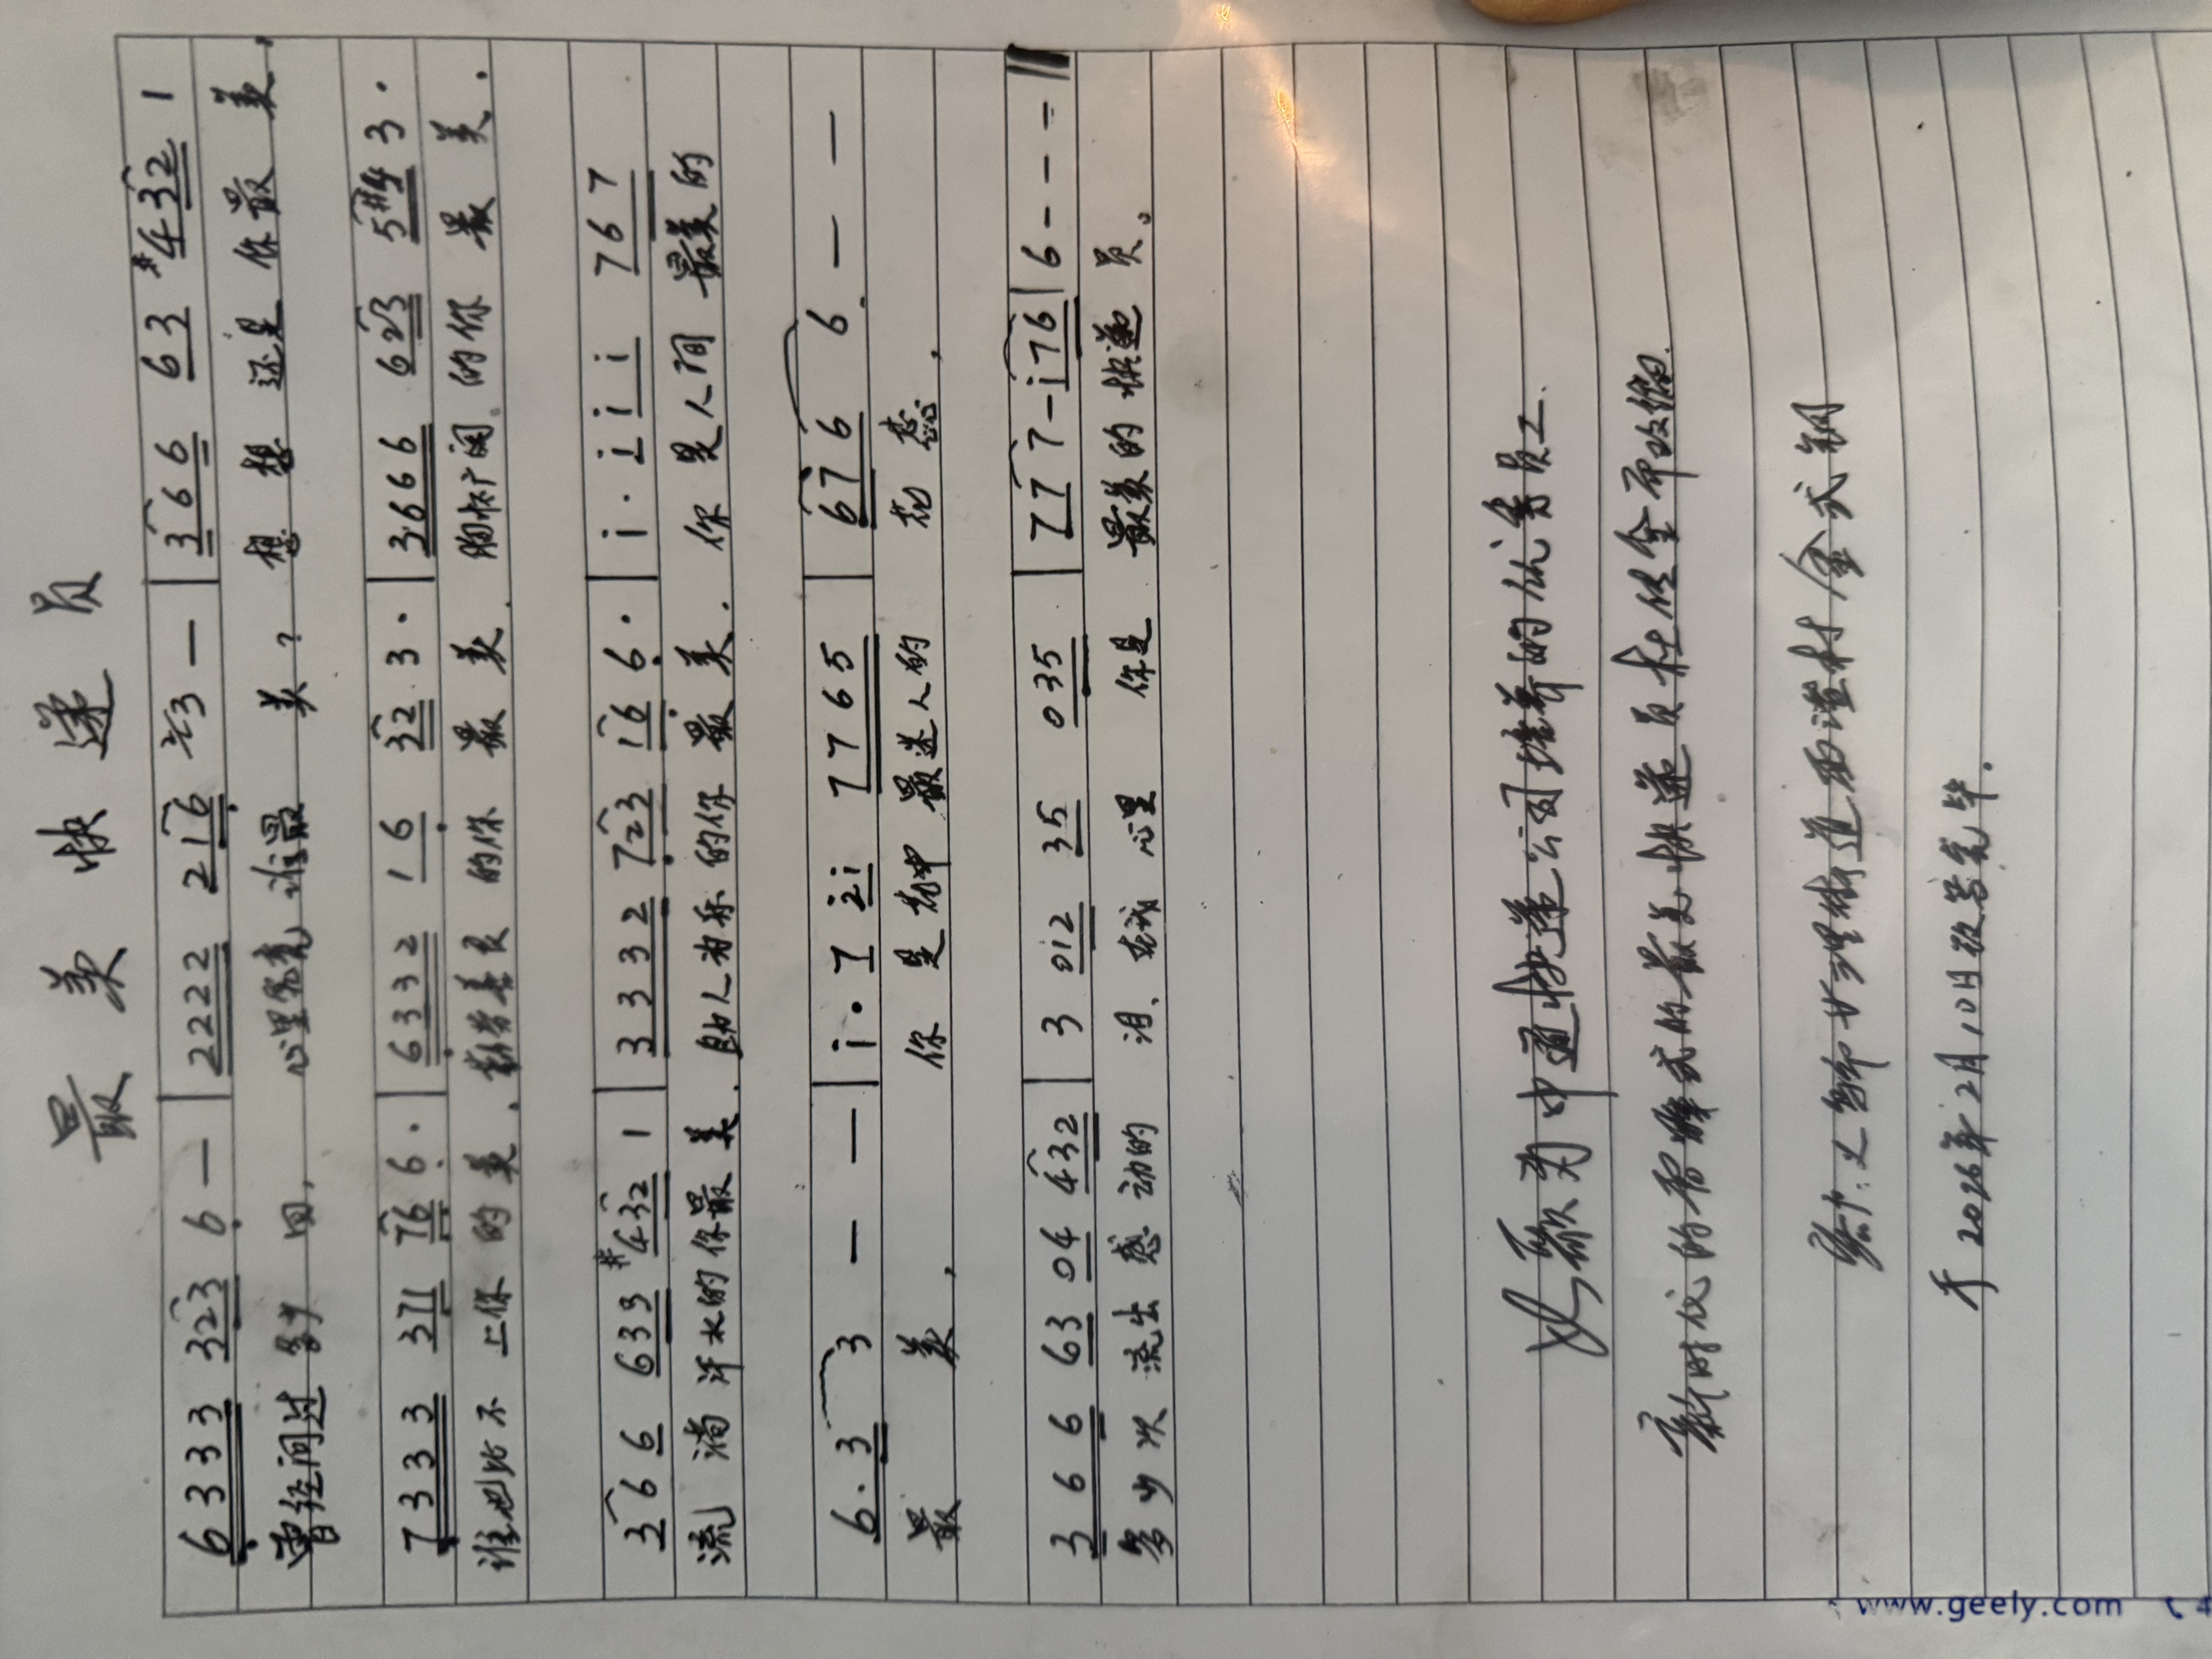 最美快递员
6333 323 6 — | 2222 216 23 — | 366 63 #432 1
曾经问过多少回，心里宽亮谁最美？想想还是你最美，
7333 371 76 6· | 6332 16 32 3· | 3666 623 5#4 3·
谁也比不上你的美．勤劳善良的你最美．胸怀广阔的你最美．
366 633 #432 1 | 3332 723 16 6· | i· i i i 767
流淌汗水的你最美．助人为乐的你最美．你是人间最美的
6·3 3 — — | i· 7 2i 7765 | 676 6 — —
最美，你是花中最迷人的花蕊，
366 63 04 432 | 3 012 35 035 | 77 7 - i76 | 6 - - - ‖
多少次流出感动的泪．在我心里你是最美的快递员。
此歌为中通快递公司培养的优秀员工．
新时代的雷锋式的最美快递员杜俊全而改编．
金式钢
于2026年2月10日改写完毕．
www.geely.com